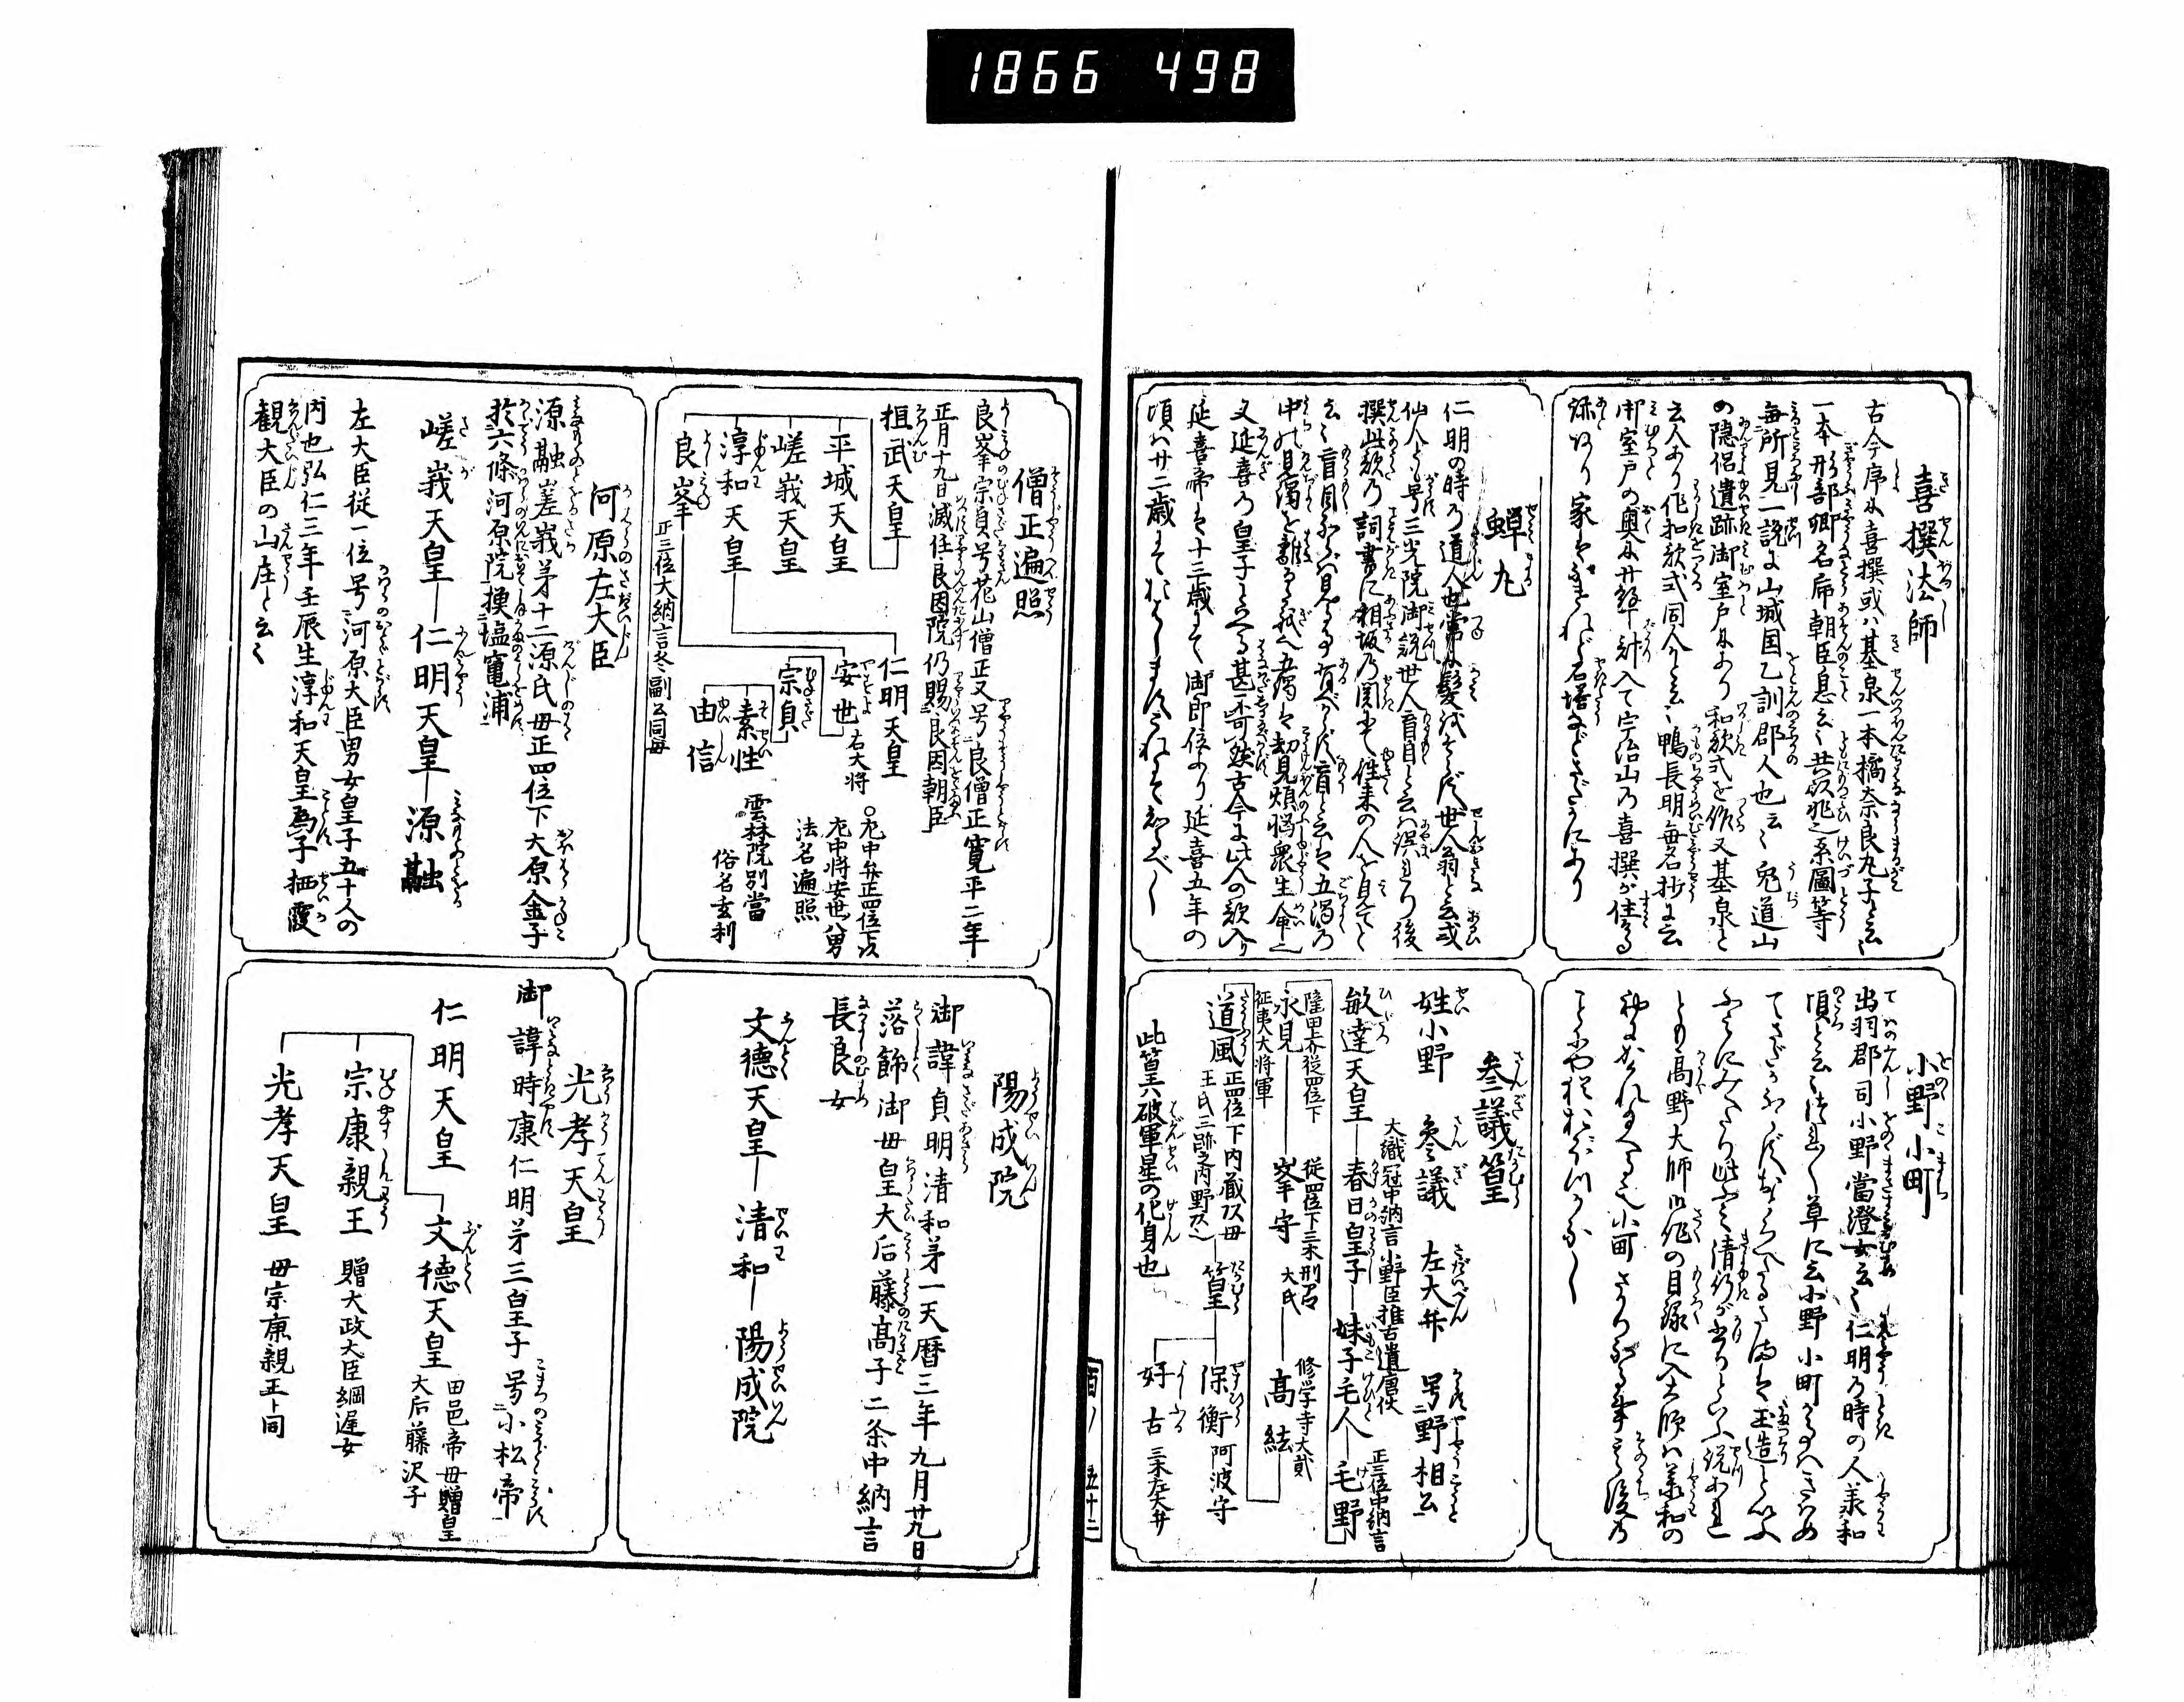 1866 498
喜撰法師
古今序に喜撰或ハ基泉一本橘奈良丸子と云
一本刑部卿名虎朝臣息云々共以非之系圖等
毎所見一説に山城国乙訓郡人也云々兎道山
の隠侶遺跡御室戸にあり和歌式を作又基泉と
云人あり作和歌式同人かと云々鴨長明無名抄に云
御室戸の奥に廿餘町計入て宇治山の喜撰が住る
跡あり家ハなけれど石塔などさだかにあり
小野小町
出羽郡司小野當澄女云々仁明の時の人承和
頃と云々つれ〳〵草に云小野小町がことハきはめ
てさだかならずおとろへたるさまハ玉造といふ
ふみにみえたり此ふミ清行が書りといふ説あれ
とも高野大師御作の目録に入大師ハ承和の
初にかくれ給へる也小町さかりなる事其後の
ことにや猶おぼつかなし
蝉丸
仁明の時の道人也常に髪をそらず世人翁と云或
仙人とも号三光院御説世人盲目と云ハ誤れり後
撰此歌の詞書に相坂の関にて往来の人を見てと
云々盲目ならバ見る事有べからず盲と云ハ五濁の
中の見濁を離るゝ義
又延喜の皇子といへる甚不可然古今に此人の歌入り
延喜帝ハ十三歳にて御即位あり延喜五年の
頃ハ廿二歳にておハしますこれにてしるべし
参議篁
姓小野 参議 左大弁 号野相公
敏達天皇 春日皇子 妹子 毛人 毛野
大織冠中納言小野臣推古遣唐使
正三位中納言
永見 征夷大将軍
峯守 従四位下三木刑部
高絃 修学寺大貳
道風 正四位下内蔵頭
篁 保衡 阿波守
好古 三木左大弁
此篁ハ破軍星の化身也
百ノ 五十二
僧正遍照
良峯宗貞号花山僧正又号良僧正寛平二年
正月十九日滅住良因院仍賜良因朝臣
桓武天皇
平城天皇
嵯峨天皇
淳和天皇 仁明天皇
良峯 正三位大納言冬嗣公同母
安世 右大将
宗貞 左中弁正四位下
左中将安世八男
法名遍照
素性 雲林院別當
俗名玄利
由信
陽成院
御諱貞明清和第一天暦三年九月廿九日
落飾御母皇大后藤高子二条中納言
長良女
文徳天皇 清和 陽成院
河原左大臣
源融嵯峨第十二源氏母正四位下大原金子
於六條河原院摸塩竈浦
嵯峨天皇 仁明天皇 源融
左大臣従一位号河原大臣男女皇子五十人の
内也弘仁三年壬辰生淳和天皇為子栖霞
観大臣の山庄と云々
光孝天皇
御諱時康仁明第三皇子号小松帝
仁明天皇 文徳天皇 田邑帝母贈皇
大后藤沢子
宗康親王 贈大政大臣綱遅女
光孝天皇 母宗康親王ト同